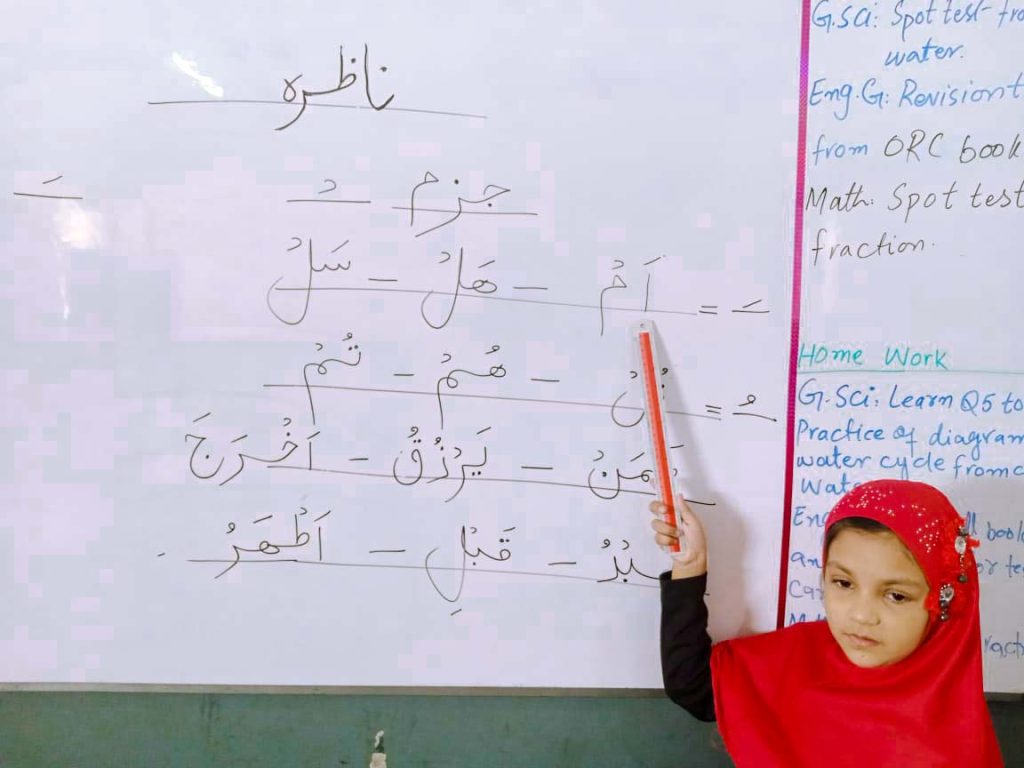 ناظرہ
جزم ـْ ـَ
ـَ = اَمْ - هَلْ - سَلْ
ـُ = - هُمْ - تُمْ
مَنْ - يَرْزُقُ - اَخْرَجَ
قَبْلِ - اَظْهَرُ -
G.Sci: Spot test fro
water.
Eng.G: Revision t
from ORC book
Math: Spot test
fraction.
Home Work
G.Sci: Learn Q5 to
Practice of diagram
water cycle from c
Wat
En ll book
an or te
Ca
M ract